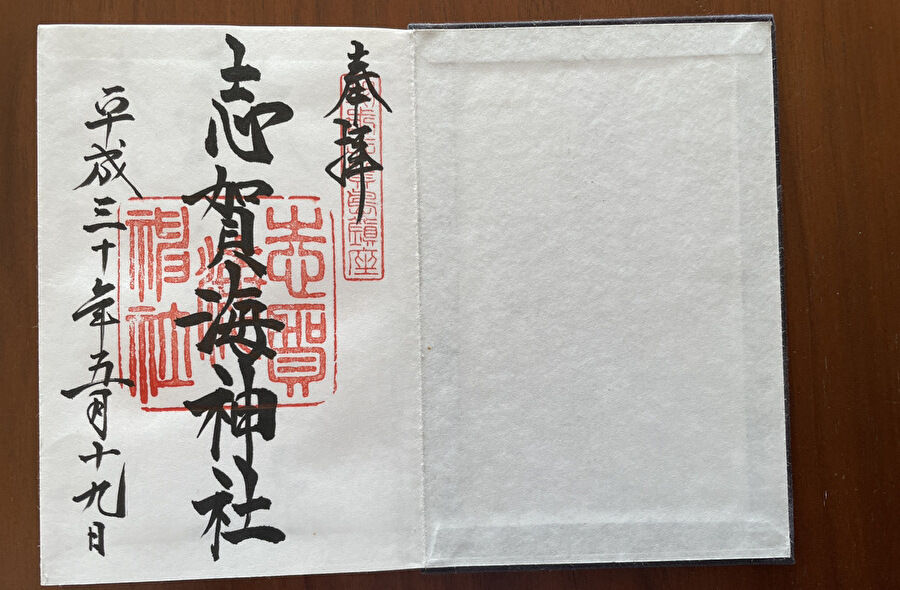 奉拝
志賀海神社
平成三十年五月十九日
志賀海神社